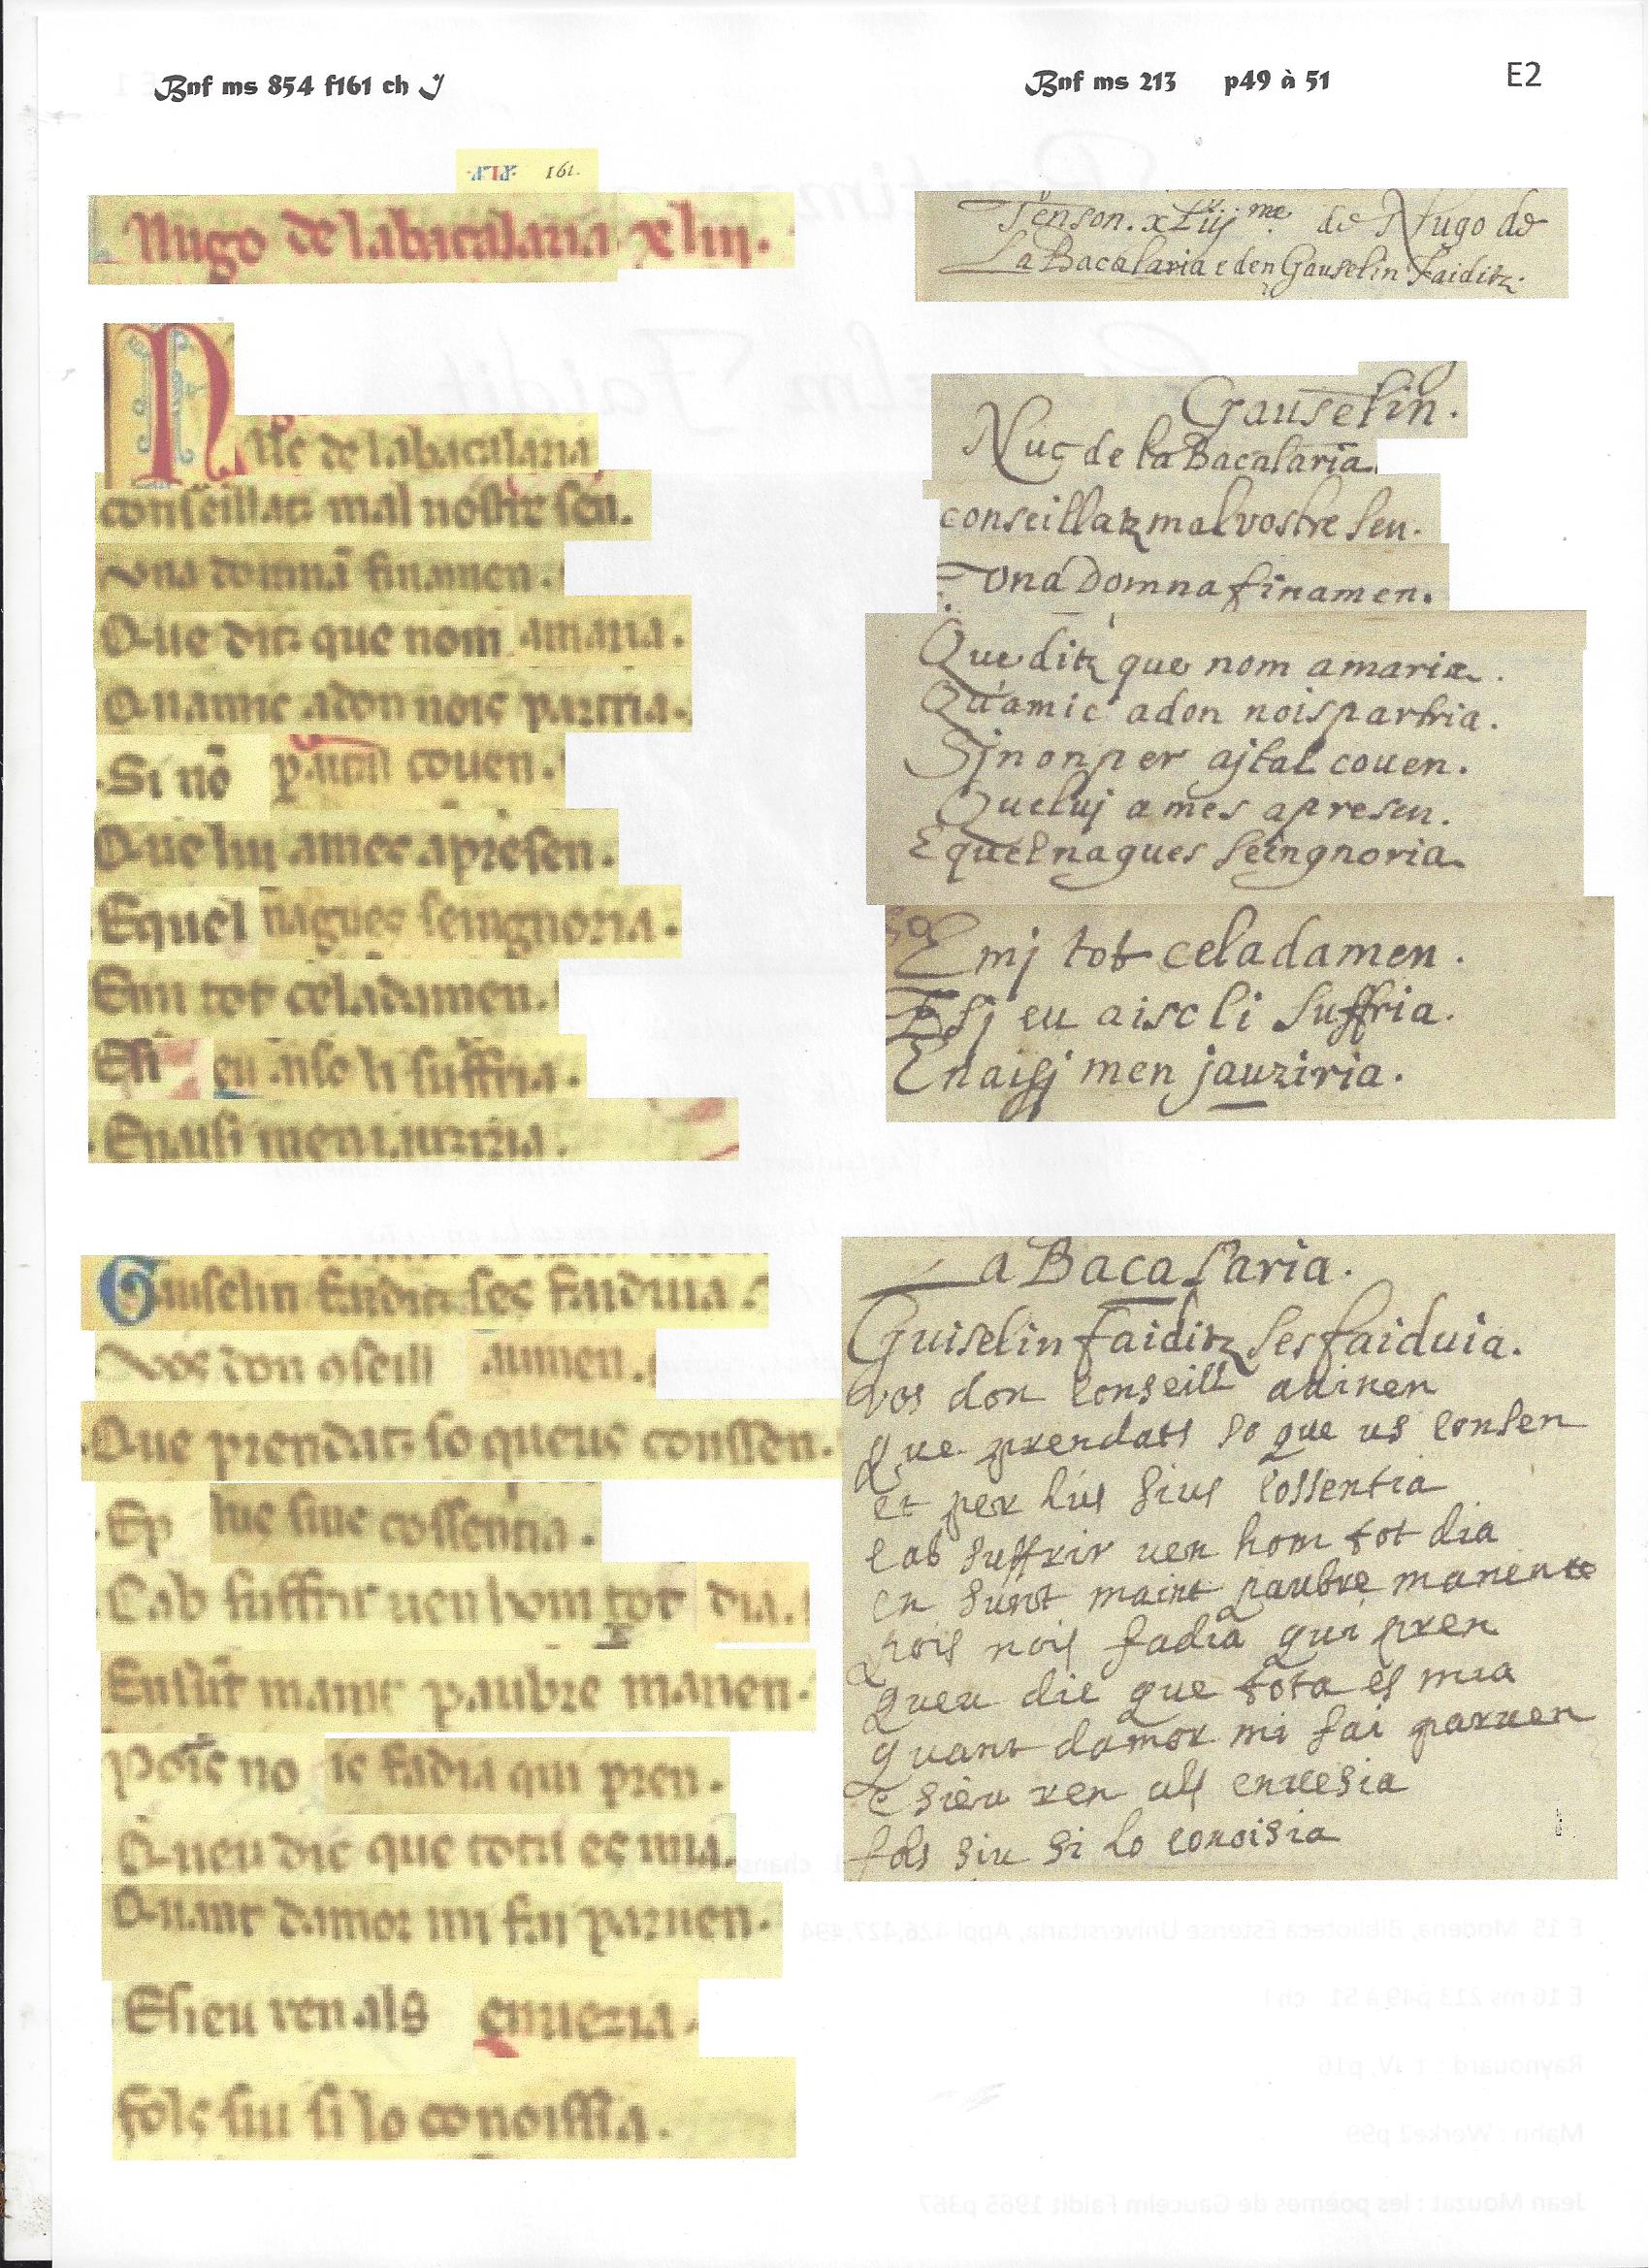 Bnf ms 854 f161 ch J
Bnf ms 213 p49 à 51
E2
161.
Nugo de labacalaria xliii.
Nuc de labacalaria
conseillatz mal uostre sen.
Una domna finamen.
Que ditz que nom amaria.
Quamic adon nois partria.
Si nō p aital couen.
Que lui ames apresen.
Equel nagues seingnoria.
Emi tot celadamen.
Esi eu aiso li suffria.
Enaisi men iauziria.
Gauselin faiditz ses faiduia.
Vos don 9seill auinen.
Que prendatz so queus conssen.
Ep lius siuc cossentia.
Cab suffrir uen hom tot dia.
Ensūt maint paubre manen.
Pois no is fadia qui pren.
Queu dic que tota es mia.
Quant damor mi fai paruen.
Esieu ren als enuezia.
fols siu si lo conoissia.
Tenson. xLiij me. de Nugo de
La Bacalaria e den Gauselin Faiditz.
Gauselin.
Nuc de la Bacalaria.
conseillatz mal vostre sen.
Vna Domna finamen.
Que ditz que nom amaria.
Qu'amic adon nois partria.
Sj non per ajtal couen.
Que luj ames apresen.
E quel nagues seingnoria.
50
E mj tot celadamen.
E sj eu aiso li suffria.
Enaisj men jauziria.
La Bacalaria.
Guiselin faiditz ses faiduia.
vos don conseill auinen
que prendats so que us consen
et per lius sius cossentia
cab suffrir uen hom tot dia
en sunt maint paubre manent
pois nois fadia qui pren
queu dic que tota es mia
quant damor mi fai paruen
e sieu ren als enuesia
fols siu si lo conoisia